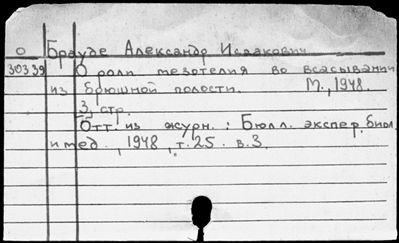 О Брауде Александр Исаакович
30339 О роли мезотелия во всасывании
из брюшной полости. М., 1948.
3 стр.
Отт. из журн.: Бюлл. экспер. биол.
и мед., 1948, т. 25. в. 3.